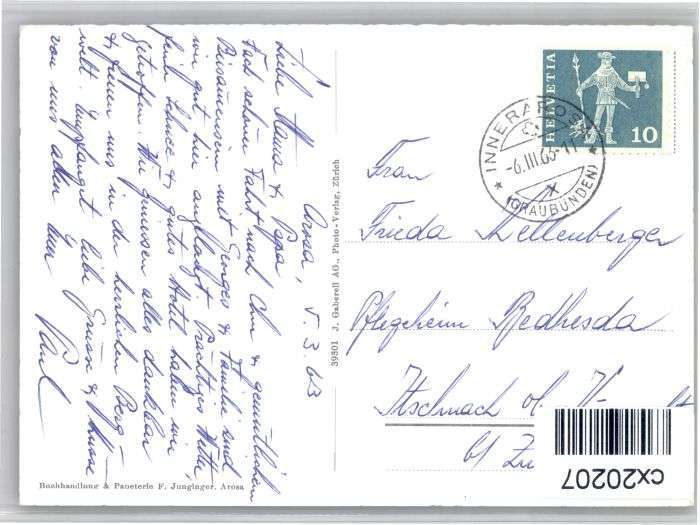 Arosa, 5.3.63
Liebe Mama & Papa
Nach schöner Fahrt nach Chur & gemütlichem
Beisammensein mit Georges & Familie sind
wir gut hier angelangt. Prächtiges Wetter,
viel Schnee & gutes Hotel haben wir
getroffen. Wir geniessen alles dankbar
& freuen uns in der herrlichen Berg-
welt. Empfangt liebe Grüsse & Küsse
von uns allen Euer
Paul
Buchhandlung & Papeterie F. Junginger, Arosa
39301 J. Gaberell AG., Photo-Verlag, Zürich
HELVETIA
10
INNERAROSA
-6.III.63-11
X
(GRAUBÜNDEN)
Frau
Frieda Zellenberger
Pflegeheim Bethesda
Itschnach ob
b/ Zü
cx20207